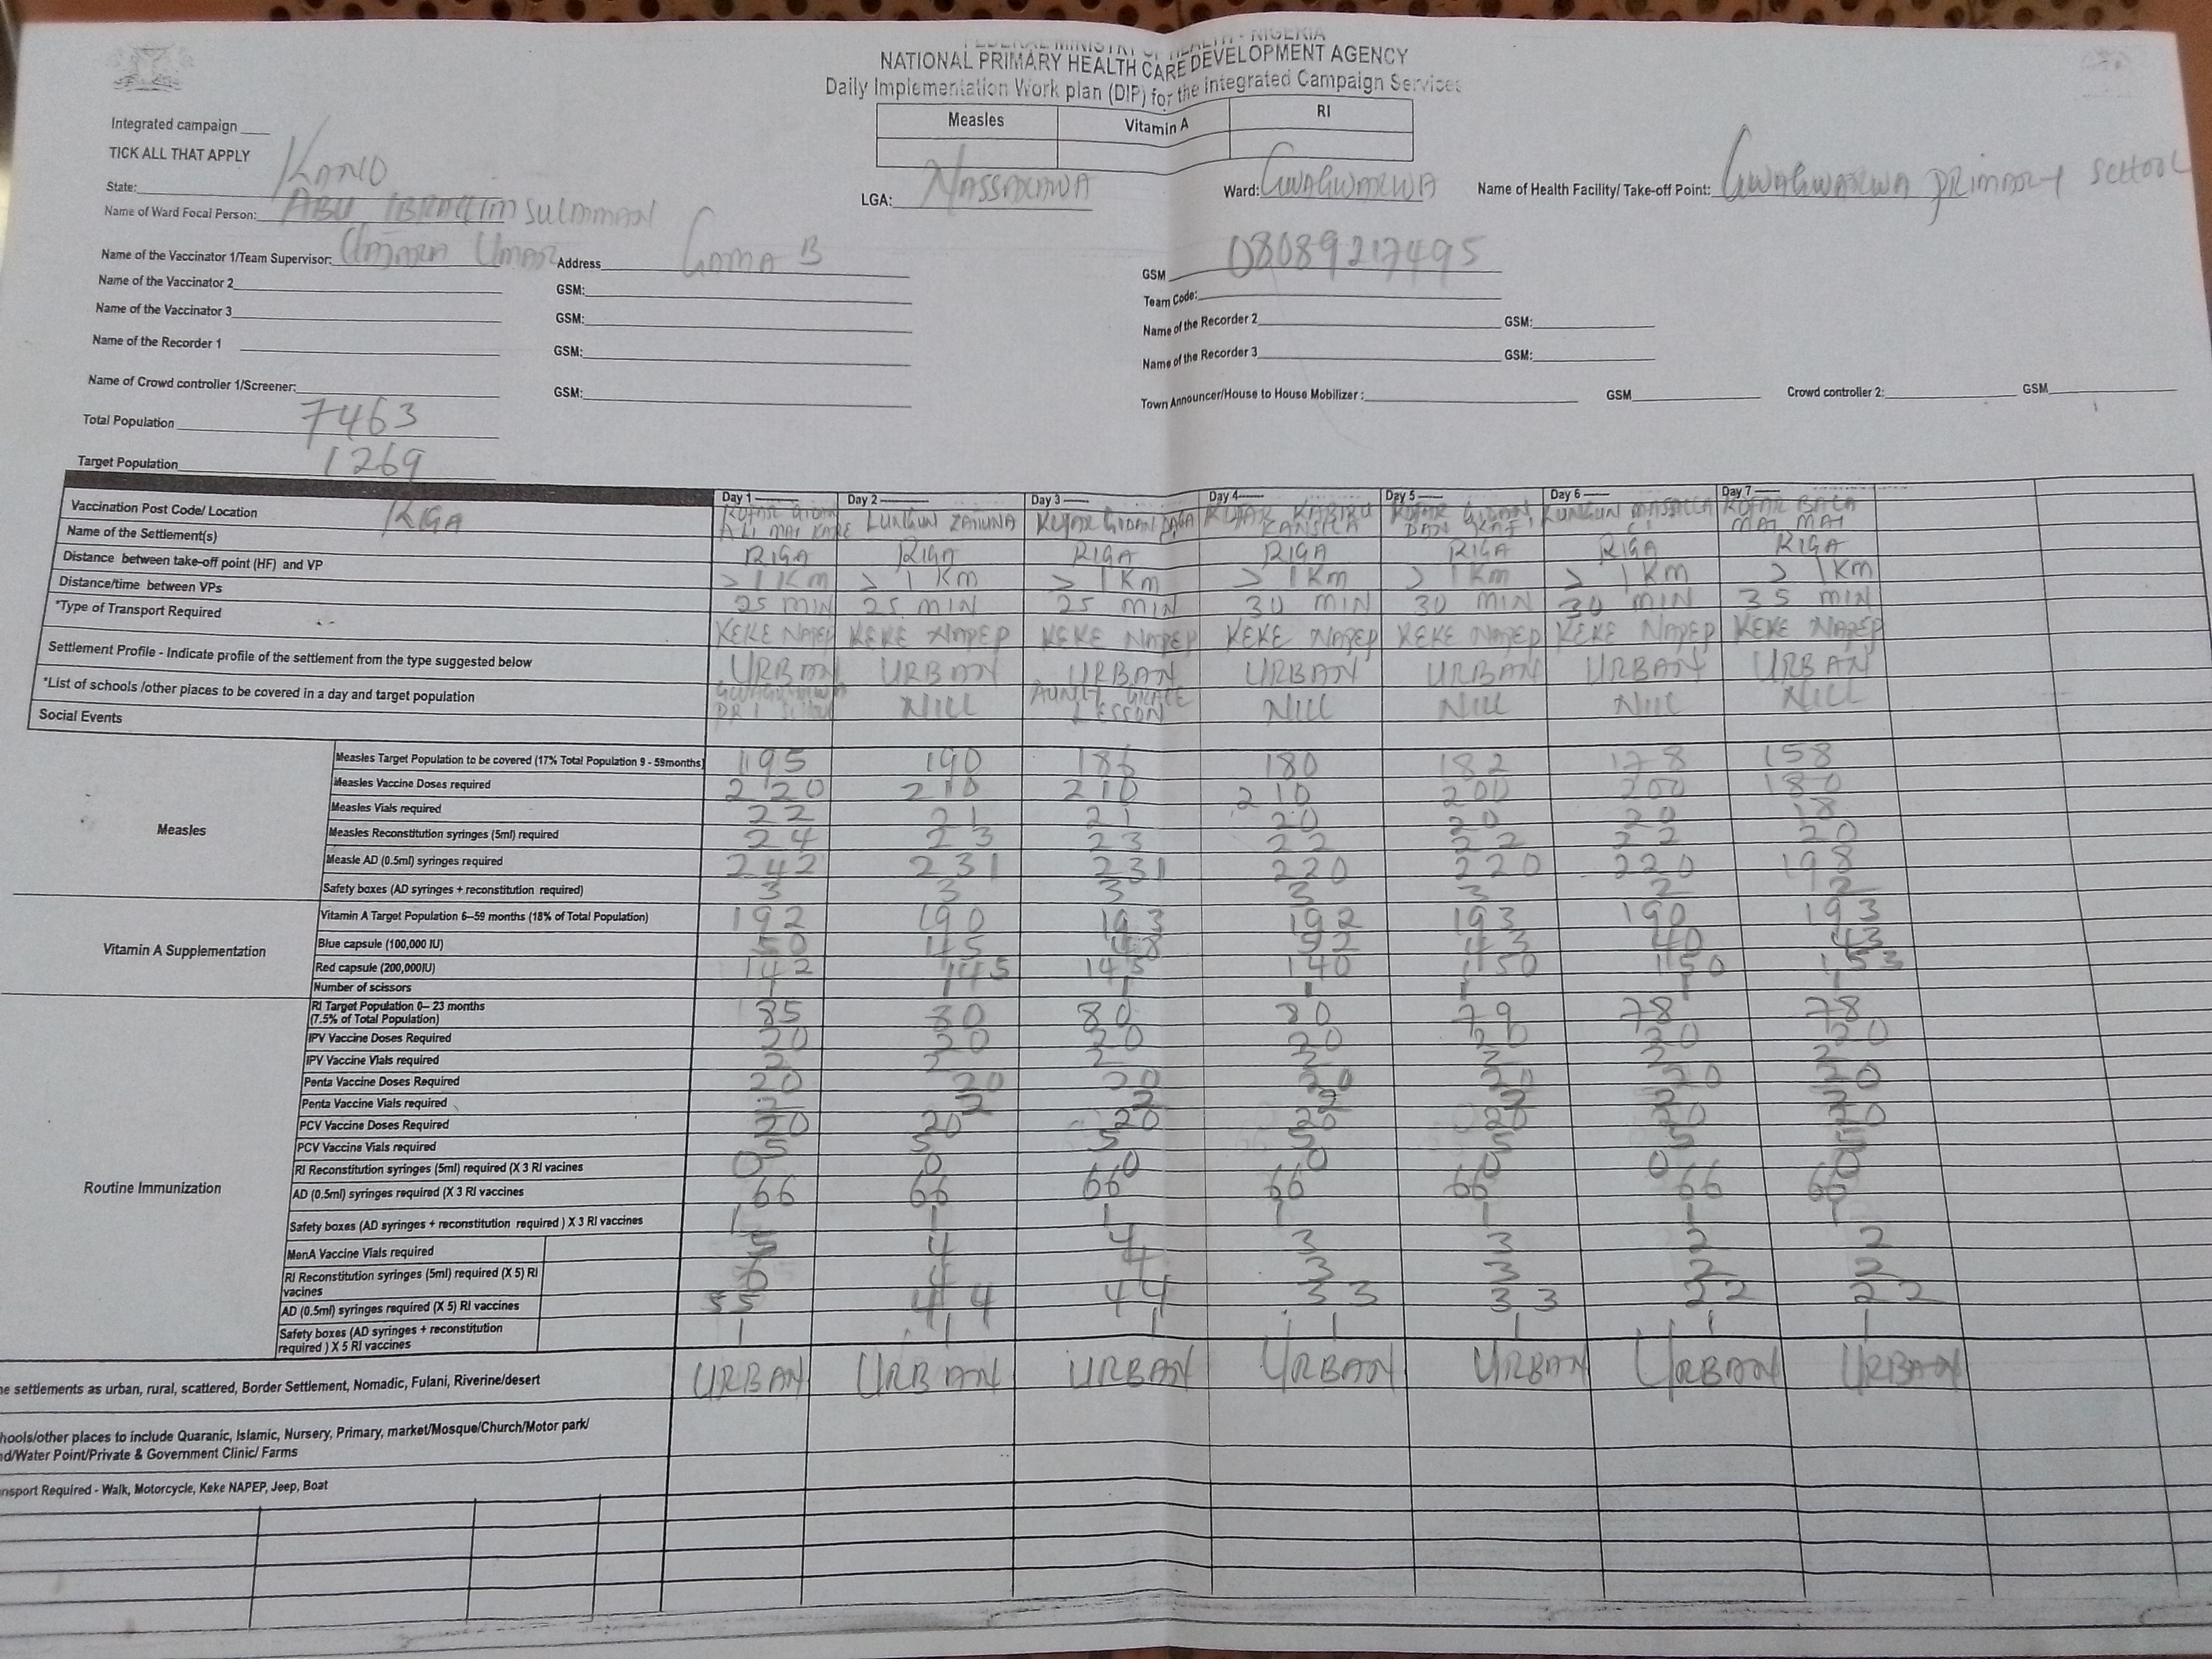 FEDERAL MINISTRY OF HEALTH - NIGERIA
NATIONAL PRIMARY HEALTH CARE DEVELOPMENT AGENCY
Daily Implementation Work plan (DIP) for the integrated Campaign Services
Measles Vitamin A RI
Integrated campaign
TICK ALL THAT APPLY
State: KANO LGA: NASSARAWA Ward: GWAGWARWA Name of Health Facility/ Take-off Point: GWAGWARWA PRIMARY SCHOOL
Name of Ward Focal Person: ABU IBRAHIM SULAIMAN
Name of the Vaccinator 1/Team Supervisor: UMAR Address GAMA B GSM 08089217495
Name of the Vaccinator 2 GSM: Team Code:
Name of the Vaccinator 3 GSM: Name of the Recorder 2 GSM:
Name of the Recorder 1 GSM: Name of the Recorder 3 GSM:
Name of Crowd controller 1/Screener: GSM: Town Announcer/House to House Mobilizer : GSM Crowd controller 2: GSM
Total Population 7463
Target Population 1269
Day 1 Day 2 Day 3 Day 4 Day 5 Day 6 Day 7
Vaccination Post Code/ Location RIGA KOFAR GIDAN ALI MAI KARE LUNGUN ZAUUNA KOFAR GIDAN DAGA KOFAR KABIRU KANSILA KOFAR GIDAN DAN LUNGUN MASSALLACI KOFAR BALA MAI MAI
Name of the Settlement(s) RIGA RIGA RIGA RIGA RIGA RIGA RIGA
Distance between take-off point (HF) and VP > 1 KM > 1 KM > 1 KM > 1 KM > 1 KM > 1 KM > 1 KM
Distance/time between VPs 25 MIN 25 MIN 25 MIN 30 MIN 30 MIN 30 MIN 35 MIN
*Type of Transport Required KEKE NAPEP KEKE NAPEP KEKE NAPEP KEKE NAPEP KEKE NAPEP KEKE NAPEP KEKE NAPEP
Settlement Profile - Indicate profile of the settlement from the type suggested below URBAN URBAN URBAN URBAN URBAN URBAN URBAN
*List of schools /other places to be covered in a day and target population GWAGWARWA PRI SCHOOL NILL AUNTY GRACE LESSON NILL NILL NILL NILL
Social Events
Measles
Measles Target Population to be covered (17% Total Population 9 - 59months) 195 190 186 180 182 178 158
Measles Vaccine Doses required 220 210 210 210 200 200 180
Measles Vials required 22 21 21 20 20 20 18
Measles Reconstitution syringes (5ml) required 24 23 23 22 22 22 20
Measle AD (0.5ml) syringes required 242 231 231 220 220 220 198
Safety boxes (AD syringes + reconstitution required) 3 3 3 3 3 2 2
Vitamin A Supplementation
Vitamin A Target Population 6–59 months (18% of Total Population) 192 190 193 192 193 190 193
Blue capsule (100,000 IU) 50 45 48 52 43 40 43
Red capsule (200,000IU) 142 145 145 140 150 150 153
Number of scissors 1 1 1 1 1 1 1
Routine Immunization
RI Target Population 0– 23 months (7.5% of Total Population) 85 80 80 80 79 78 78
IPV Vaccine Doses Required 20 20 20 20 20 20 20
IPV Vaccine Vials required 2 2 2 2 2 2 2
Penta Vaccine Doses Required 20 20 20 20 20 20 20
Penta Vaccine Vials required 2 2 2 2 2 2 2
PCV Vaccine Doses Required 20 20 20 20 20 20 20
PCV Vaccine Vials required 5 5 5 5 5 5 5
RI Reconstitution syringes (5ml) required (X 3 RI vacines 0 0 0 0 0 0 0
AD (0.5ml) syringes required (X 3 RI vaccines 66 66 66 66 66 66 66
Safety boxes (AD syringes + reconstitution required ) X 3 RI vaccines 1 1 1 1 1 1 1
MenA Vaccine Vials required 5 4 4 3 3 2 2
RI Reconstitution syringes (5ml) required (X 5) RI vacines 4 4 3 3 2 2
AD (0.5ml) syringes required (X 5) RI vaccines 55 44 44 33 33 22 22
Safety boxes (AD syringes + reconstitution required ) X 5 RI vaccines 1 1 1 1 1 1 1
e settlements as urban, rural, scattered, Border Settlement, Nomadic, Fulani, Riverine/desert URBAN URBAN URBAN URBAN URBAN URBAN URBAN
hools/other places to include Quaranic, Islamic, Nursery, Primary, market/Mosque/Church/Motor park/
d/Water Point/Private & Government Clinic/ Farms
nsport Required - Walk, Motorcycle, Keke NAPEP, Jeep, Boat